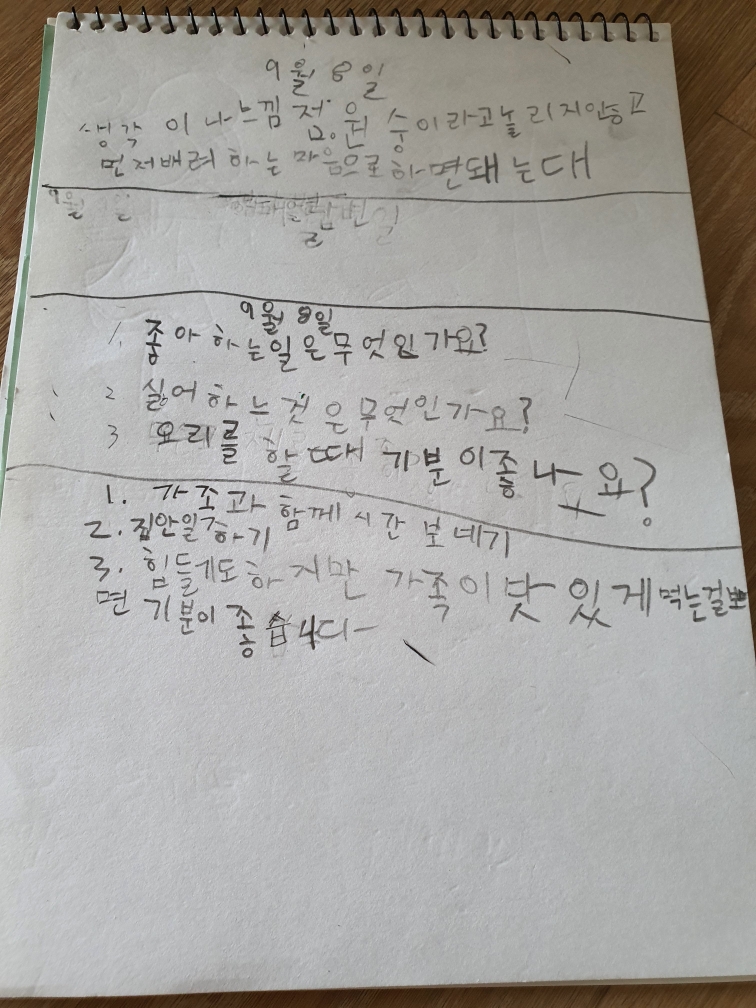 9월 8일
생각 이 나 느낌 점은 원숭이라고 놀리지 안ㅎ고
먼저 배려 하는 마음으로 하면돼는대
9월 일
9월 8일
1. 좋아하는일은무엇인가요?
2 싫어하는것은무엇인가요?
3 요리를 할때 기분이좋나요?
1. 가조과 함께 시간 보네기
2. 집안일하기
3. 힘들기도하지만 가족이맛있게먹는걸보
면 기분이 좋습니다